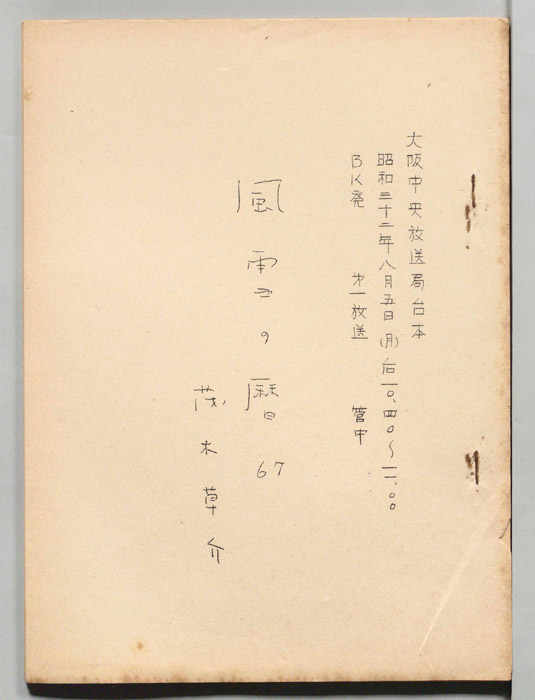 大阪中央放送局台本
昭和三十二年八月五日(月)后一〇、四〇〜一一、〇〇
BK発 才一放送 管中
風雪の暦 67
茂木草介